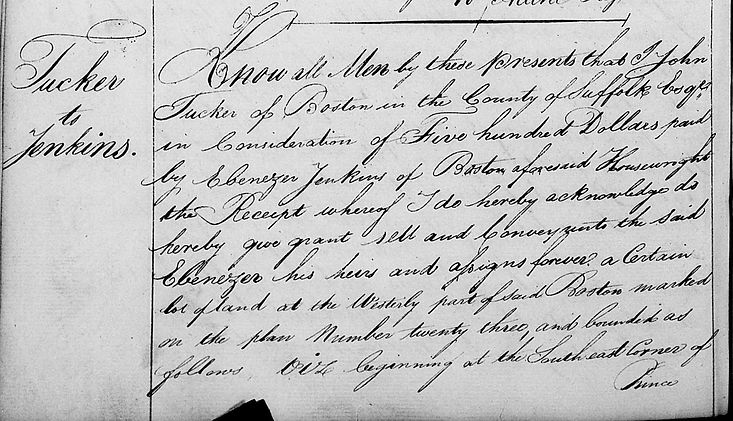 Tucker
to
Jenkins.
Know all Men by these Presents that I John
Tucker of Boston in the County of Suffolk Esqr.
in Consideration of Five hundred Dollars paid
by Ebenezer Jenkins of Boston aforesaid Housewright
the Receipt whereof I do hereby acknowledge do
hereby give grant sell and Convey unto the said
Ebenezer his heirs and assigns forever. a Certain
lot of land at the Westerly part of said Boston marked
on the plan Number twenty three, and bounded as
follows, Viz beginning at the South east Corner of
Prince